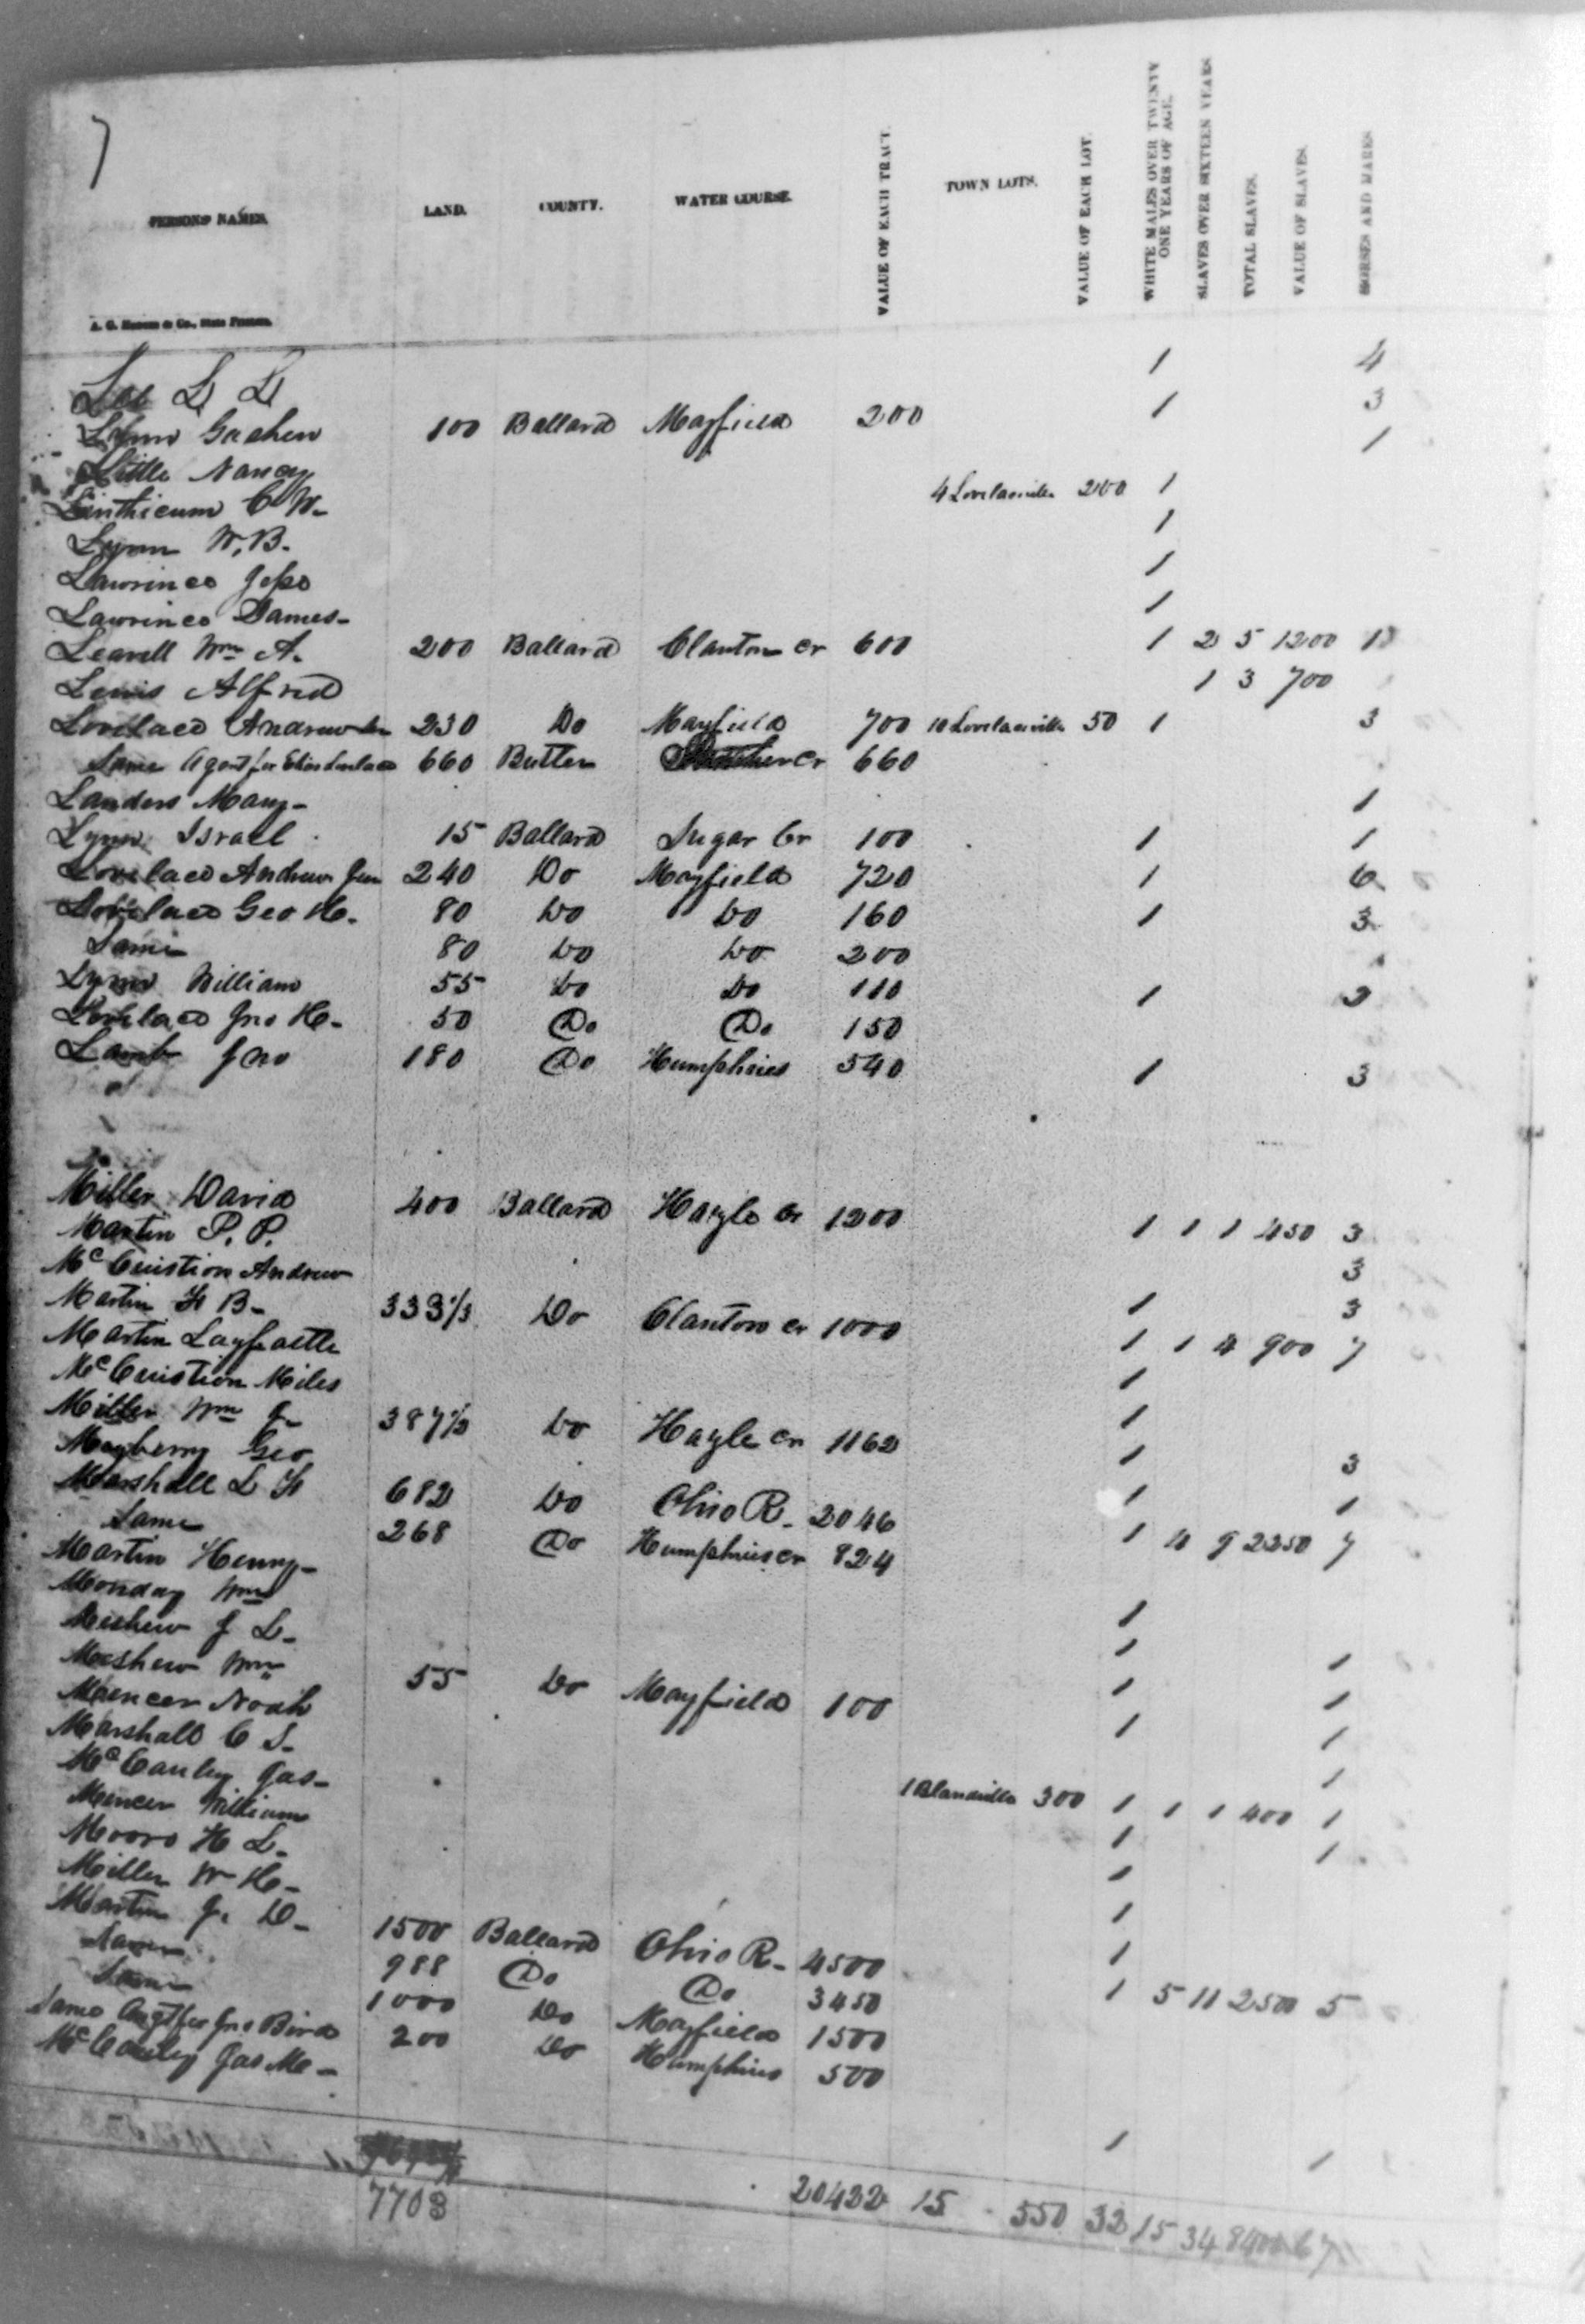 7
PERSONS' NAMES. LAND. COUNTY. WATER COURSE. VALUE OF EACH TRACT. TOWN LOTS. VALUE OF EACH LOT. WHITE MALES OVER TWENTY ONE YEARS OF AGE. SLAVES OVER SIXTEEN YEARS TOTAL SLAVES. VALUE OF SLAVES. HORSES AND MARES
A. G. Hodges & Co., State Printers.
Lee L L 1 4
Lynn Gashen 100 Ballard Mayfield 200 1 3
Little Nancy 1
Linthicum C W- 4 Lovelaceville 200 1
Lynn W. B. 1
Lawrince Jesse 1
Lawrince James- 1
Leavell Wm A. 200 Ballard Clanton cr 600 1 2 5 1200
Lewis Alfred 1 3 700
Lovelace Andrew 230 Do Mayfield 700 10 Lovelaceville 50 1 3
Same Agent for Elias Lovelace 660 Butler cr 660
Landers Mary- 1
Lynn Israel 15 Ballard Sugar Cr 100 1 1
Lovelace Andrew Jun 240 Do Mayfield 720 1 6
Lovelace Geo H. 80 Do Do 160 1 3
Same 80 Do Do 200
Lynn William 55 Do Do 110 1 2
Lovelace Jno H- 50 Do Do 150
Lamb Jno 180 Do Humphries 540 1 3
Miller David 400 Ballard Hayle cr 1200 1 1 1 450 3
Martin P. P. 3
McCuistion Andrew 1 3
Martin F B- 333 1/3 Do Clanton cr 1000 1 1 4 900 7
Martin Layfaette 1
McCuistion Miles 1
Miller Wm J- 387 1/2 Do Hayle cr 1162 1 3
Mayberry Geo 1 1
Marshall L F 682 Do Ohio R- 2046 1 4 9 2250 7
Same 268 Do Humphries cr 824
Martin Henry- 1
Monday Wm 1 1
Meshew J L- 1 1
Meshew Wm 55 Do Mayfield 100 1 1
Mencer Noah 1
Marshall C S- 1 Blandville 300 1 1 1 400 1
McCauley Jas- 1 1
Mencer William 1
Moore H L- 1
Miller W H- 1
Martin J. D- 1500 Ballard Ohio R- 4500 1 5 11 2500 5
Same 988 Do Do 3450
Same 1000 Do Mayfield 1500
Same Agt for Jno Bird 200 Do Humphries 500
McCauley Jas Mc- 1 1
7703 20422 15 550 32 15 34 8400 67